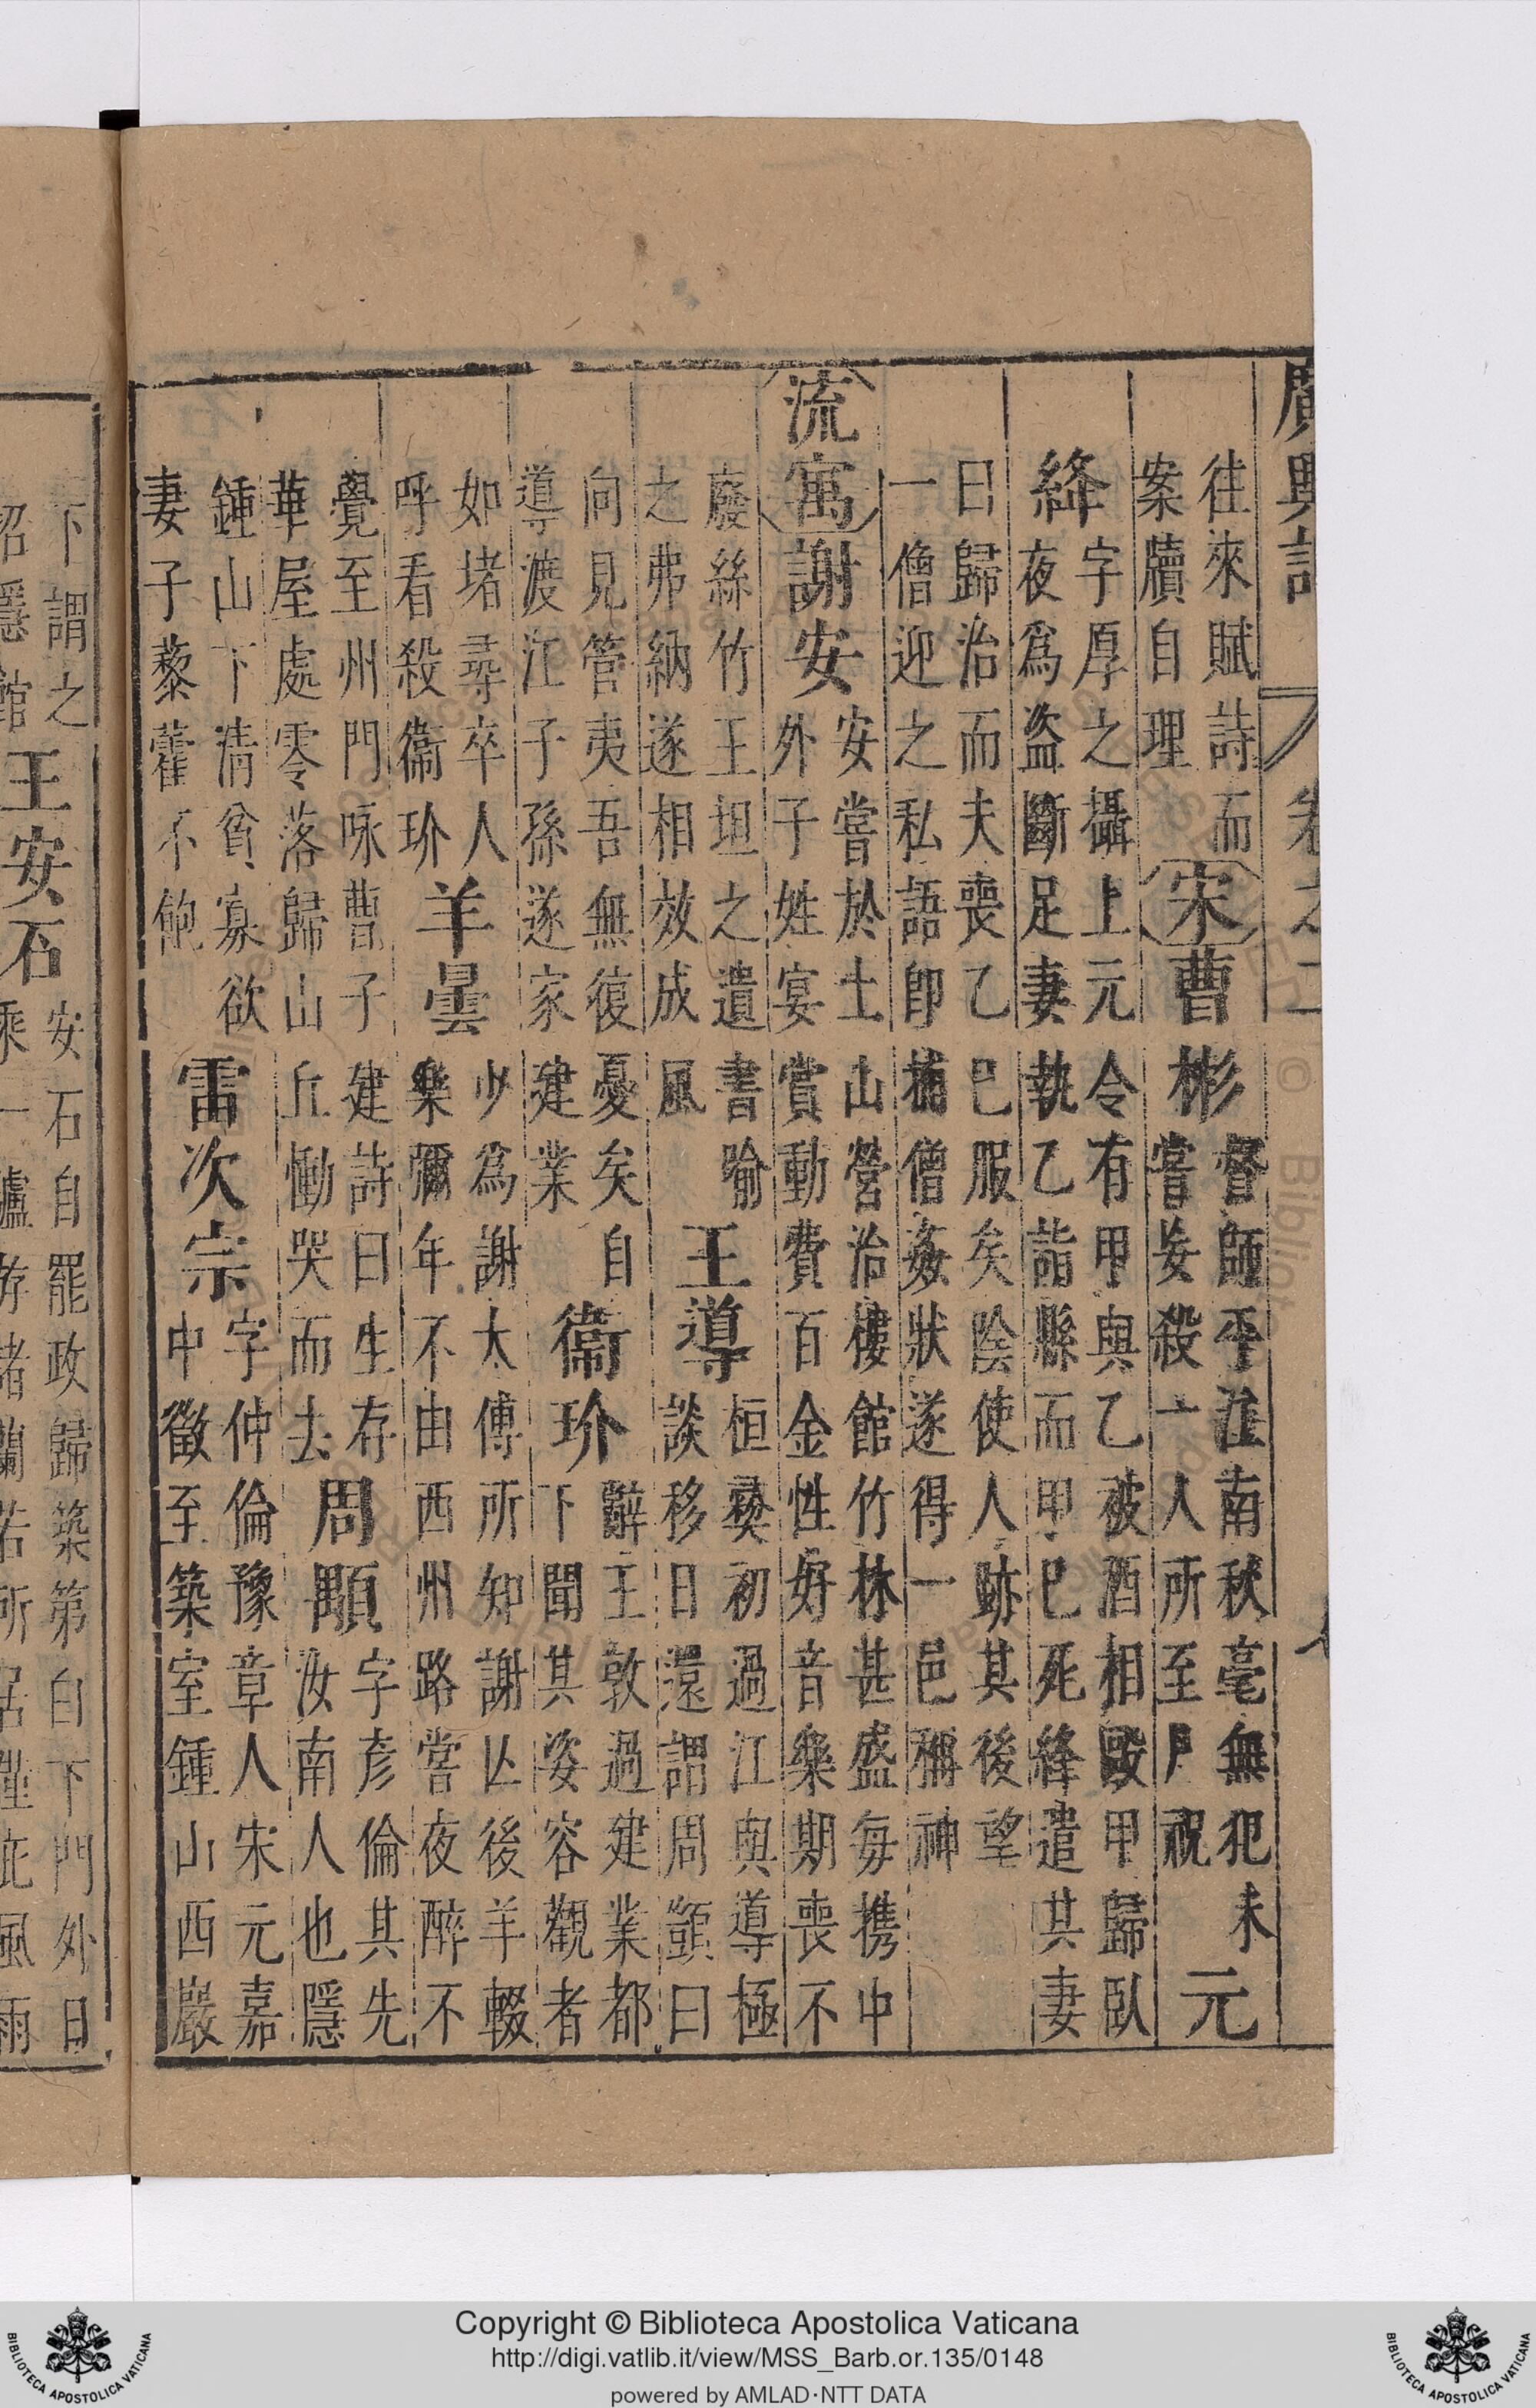 廣輿記 卷之二
往來賦詩而
案牘自理
宋 曹彬
督師平江南秋毫無犯未
嘗妄殺一人所至尸祝
元
絳
字厚之攝上元令有甲與乙被酒相毆甲歸臥
夜爲盜斷足妻執乙詣縣而甲已死絳遣其妻
曰歸治而夫喪乙已服矣陰使人跡其後望
一僧迎之私語卽捕僧姦狀遂得一邑稱神
流寓 謝安
安嘗於土山營治樓館竹林甚盛每携中
外子姓宴賞動費百金性好音樂期喪不
廢絲竹王坦之遺書喻
之弗納遂相效成風
王導
桓彝初過江與導極
談移日還謂周顗曰
向見管夷吾無復憂矣自
導渡江子孫遂家建業
衞玠
辭王敦過建業都
下聞其姿容觀者
如堵尋卒人
呼看殺衞玠
羊曇
少爲謝太傅所知謝亾後羊輟
樂彌年不由西州路嘗夜醉不
覺至州門咏曹子建詩曰生存
華屋處零落歸山丘慟哭而去
周顒
字彥倫其先
汝南人也隱
鍾山下清貧寡欲
妻子藜藿不飽
雷次宗
字仲倫豫章人宋元嘉
中徵至築室鍾山西巖
下謂之
招隱館
王安石
安石自罷政歸築第白下門外日
乘一驢游諸蘭若所居僅庇風雨
Copyright © Biblioteca Apostolica Vaticana
http://digi.vatlib.it/view/MSS_Barb.or.135/0148
powered by AMLAD·NTT DATA
BIBLIOTECA APOSTOLICA VATICANA
BIBLIOTECA APOSTOLICA VATICANA